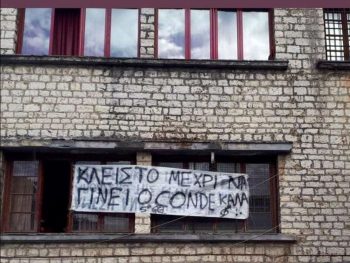 ΚΛΕΙΣΤΟ ΜΕΧΡΙ ΝΑ
ΓΙΝΕΙ Ο CONDE ΚΑΛΑ